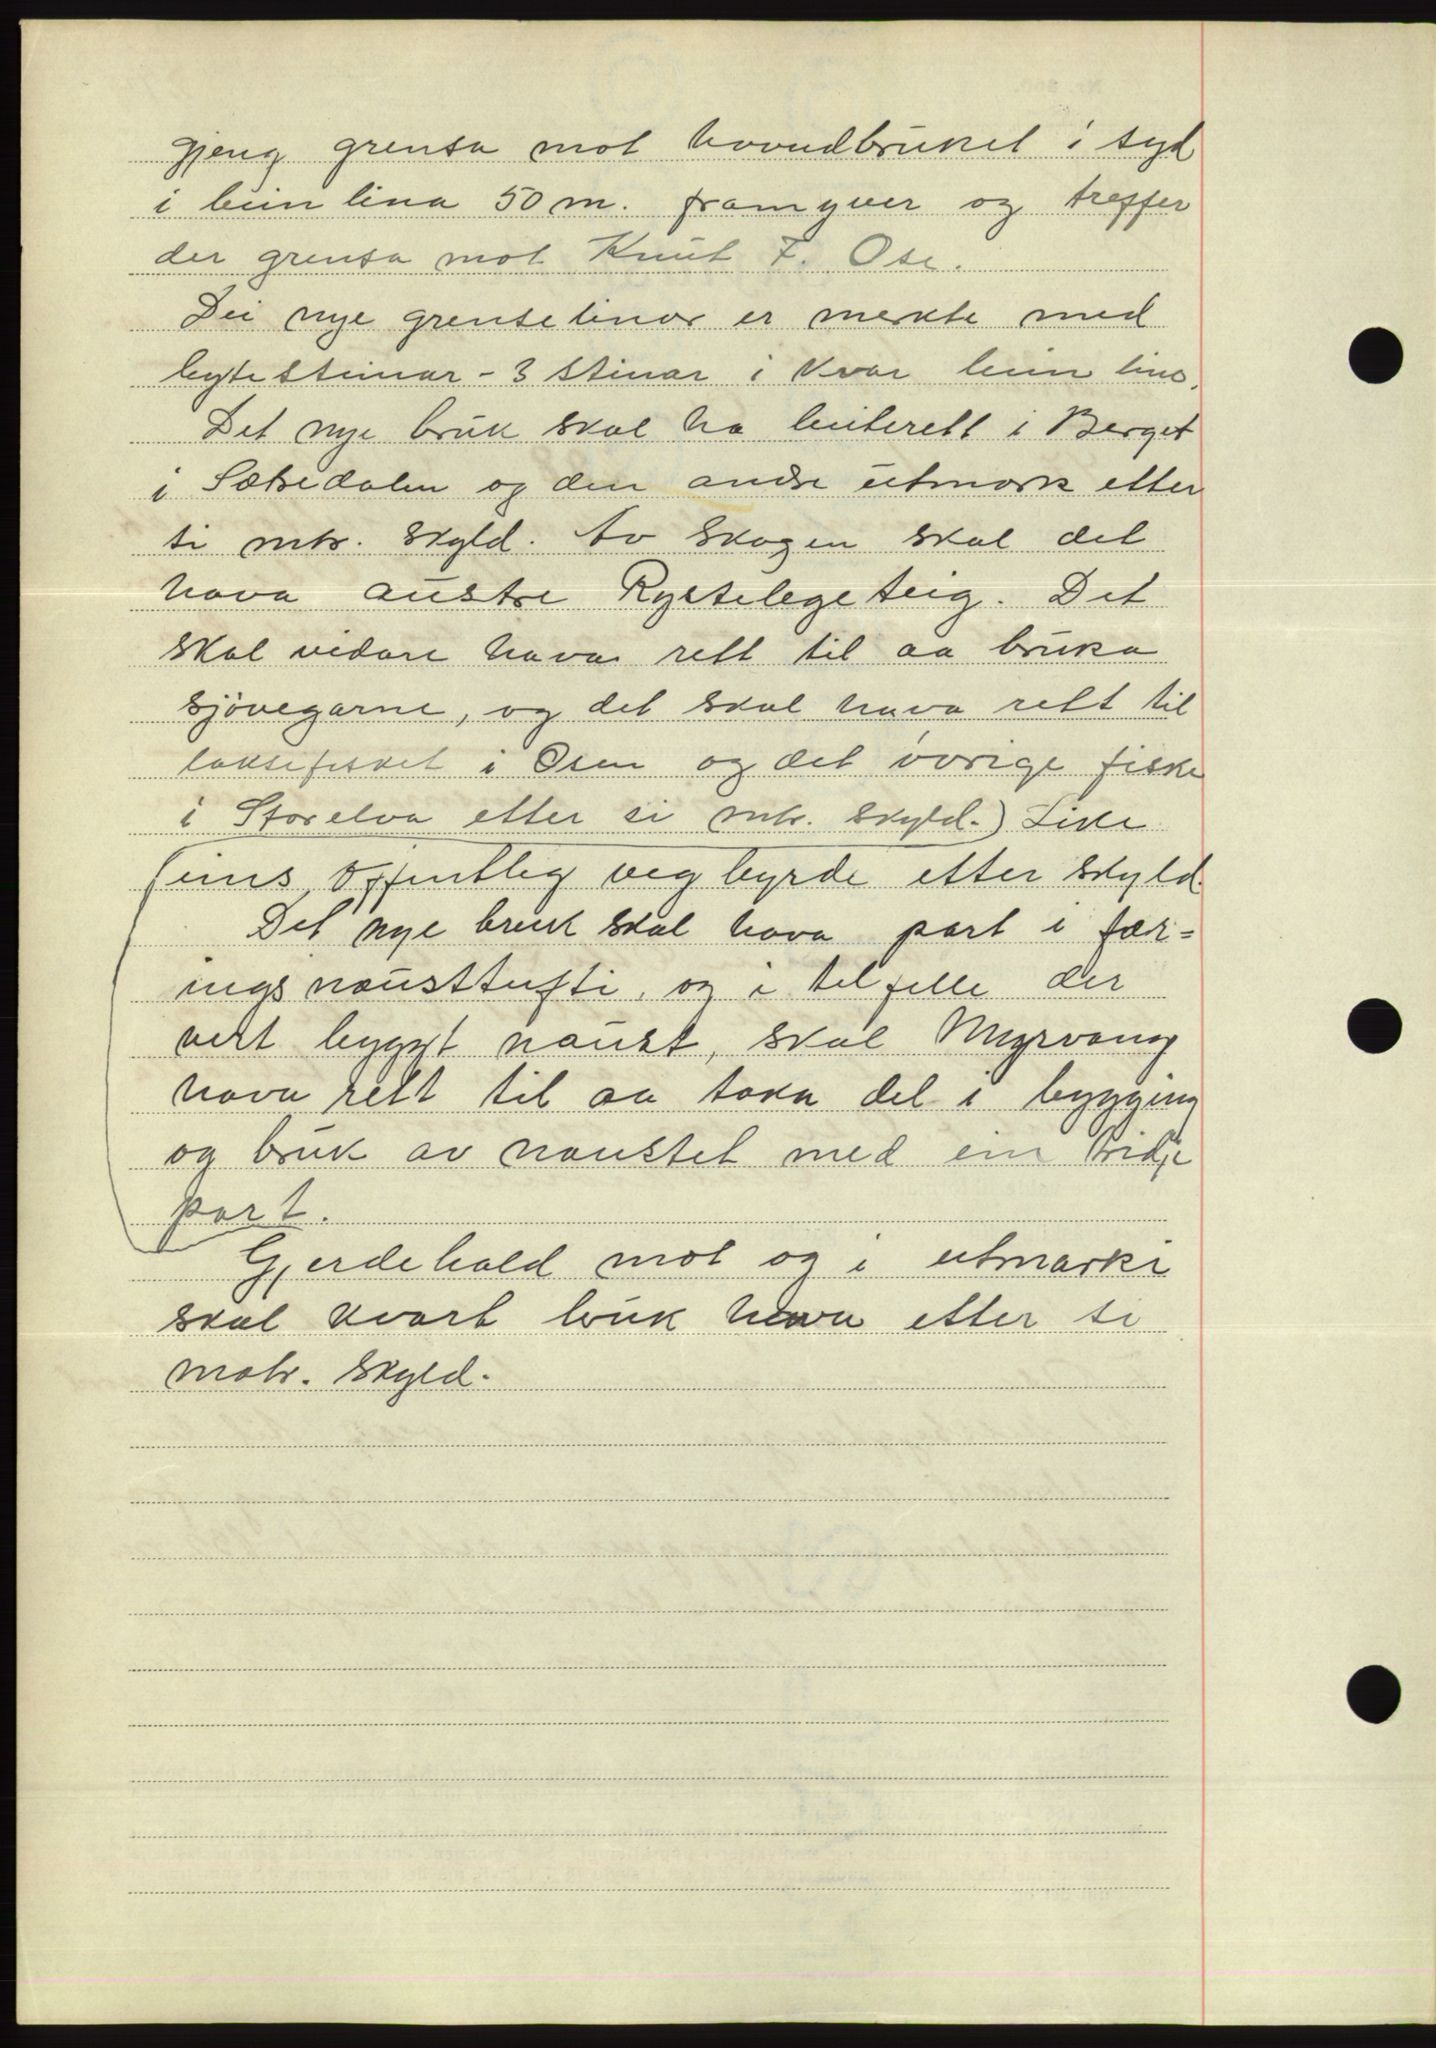 gjeng grensa mot hovudbruket i syd
i bein lina 50 m. framyver og treffer
der grensa mot Knut F. Ose.
Dei nye grenselinor er merkte med
bytesteinar - 3 steinar i kvar bein lina.
Det nye bruk skal ha beiterett i Berget
i Sætredalen og den andre utmark etter
si mtr. skyld. Av skogen skal det
hava austre Rystelegeteig. Det
skal vidare hava rett til aa bruka
sjövegarne, og det skal hava rett til
laksefisket i Osen og det övrige fiske
i Storelva etter si mtr. skyld.) Like
eins, offentleg vegbyrde etter skyld.
Det nye bruk skal hava part i fær-
ingsnausttufti, og i tilfelle der
vert byggt naust, skal Myrvang
hava rett til aa taka del i bygging
og bruk av naustet med ein tridje
part.
Gjerdehald mot og i utmarki
skal kvart bruk hava etter si
matr. skyld.